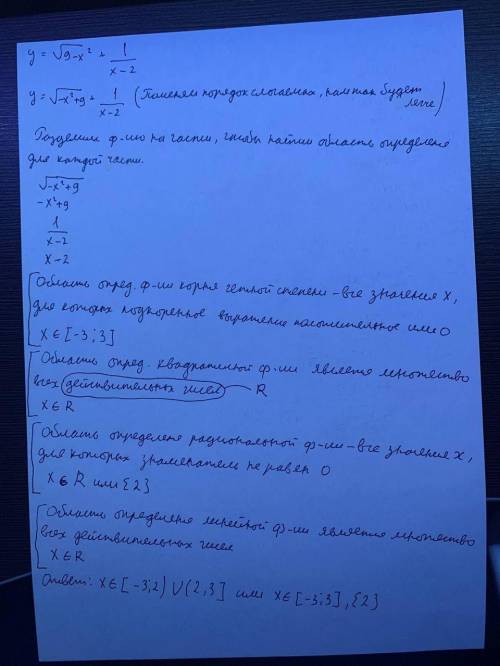 y = √9-x² + 1/x-2
y = √-x²+9 + 1/x-2 (Поменяем порядок слогаемых, нам так будет легче)
Разделим ф-ию на части, чтобы найти область определене
для каждой части.
√-x²+9
-x²+9
1/x-2
x-2
Область опред. ф-ии корня четной степени - все значения x,
для которых подкоренное выражение положительное или 0
x ∈ [-3; 3]
Область опред. квадратичной ф-ии являете множество
всех действительных чисел — R
x ∈ R
Область определене рациональной ф-ии - все значения x,
для которых знаменатель не равен 0
x ∈ R или {2}
Область определене линейной ф-ии является множество
всех действительных чисел
x ∈ R
Ответ: x ∈ [-3; 2) ∪ (2, 3] или x ∈ [-3; 3], {2}